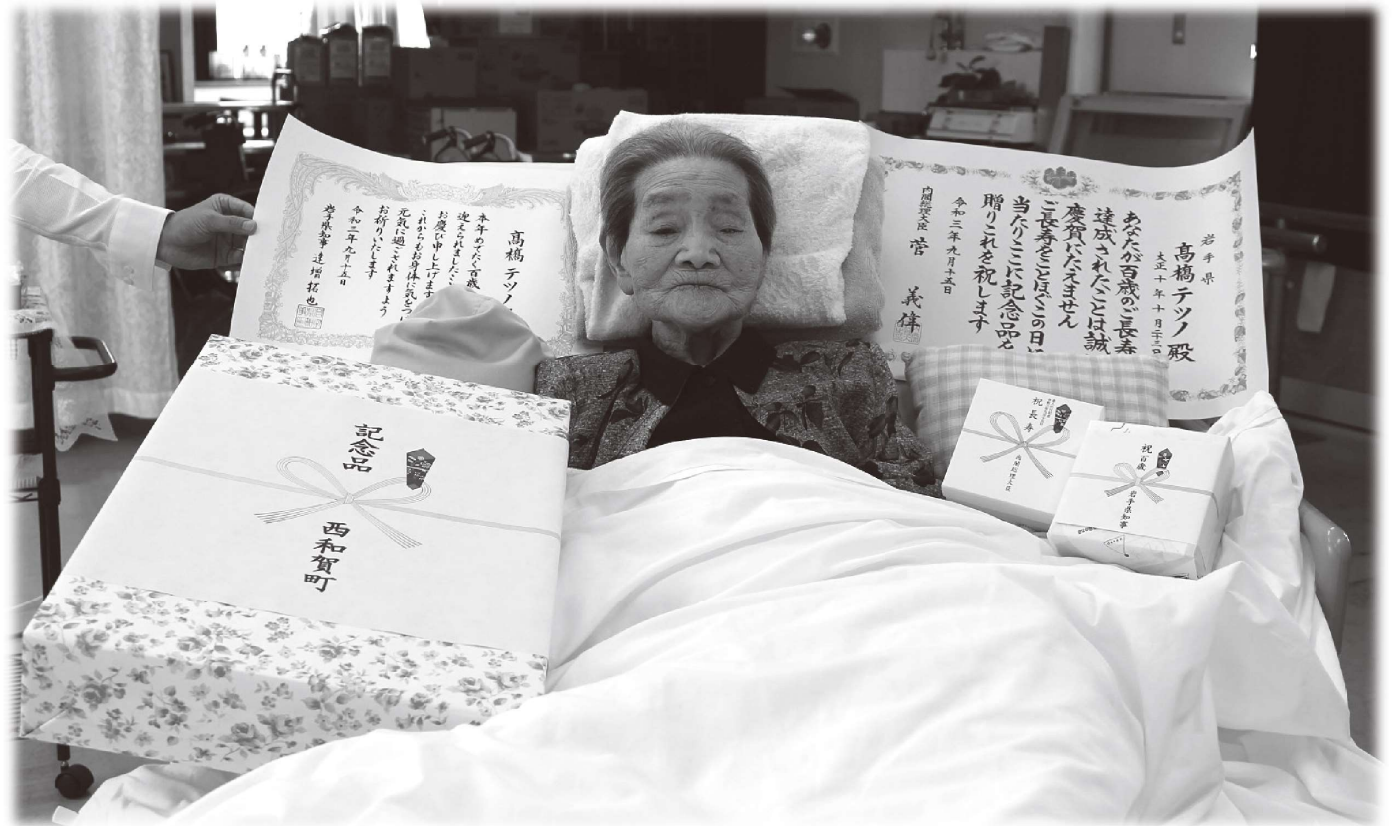 岩手県
髙橋テツノ殿
大正十年十月二十三日
あなたが百歳のご長寿
達成されたことは誠
慶賀にたえません
ご長寿をことほぐこの日に
当たりここに記念品を
贈りこれを祝します
令和三年九月十五日
内閣総理大臣 菅 義偉
髙橋テツノ
本年めでたく百歳
迎えられましたこ
お慶び申し上げます
これからもお身体に気をつ
元気に過ごされますよう
お祈りいたします
令和三年九月十五日
岩手県知事 達増拓也
記念品
西和賀町
祝長寿
内閣総理大臣
祝百歳
岩手県知事